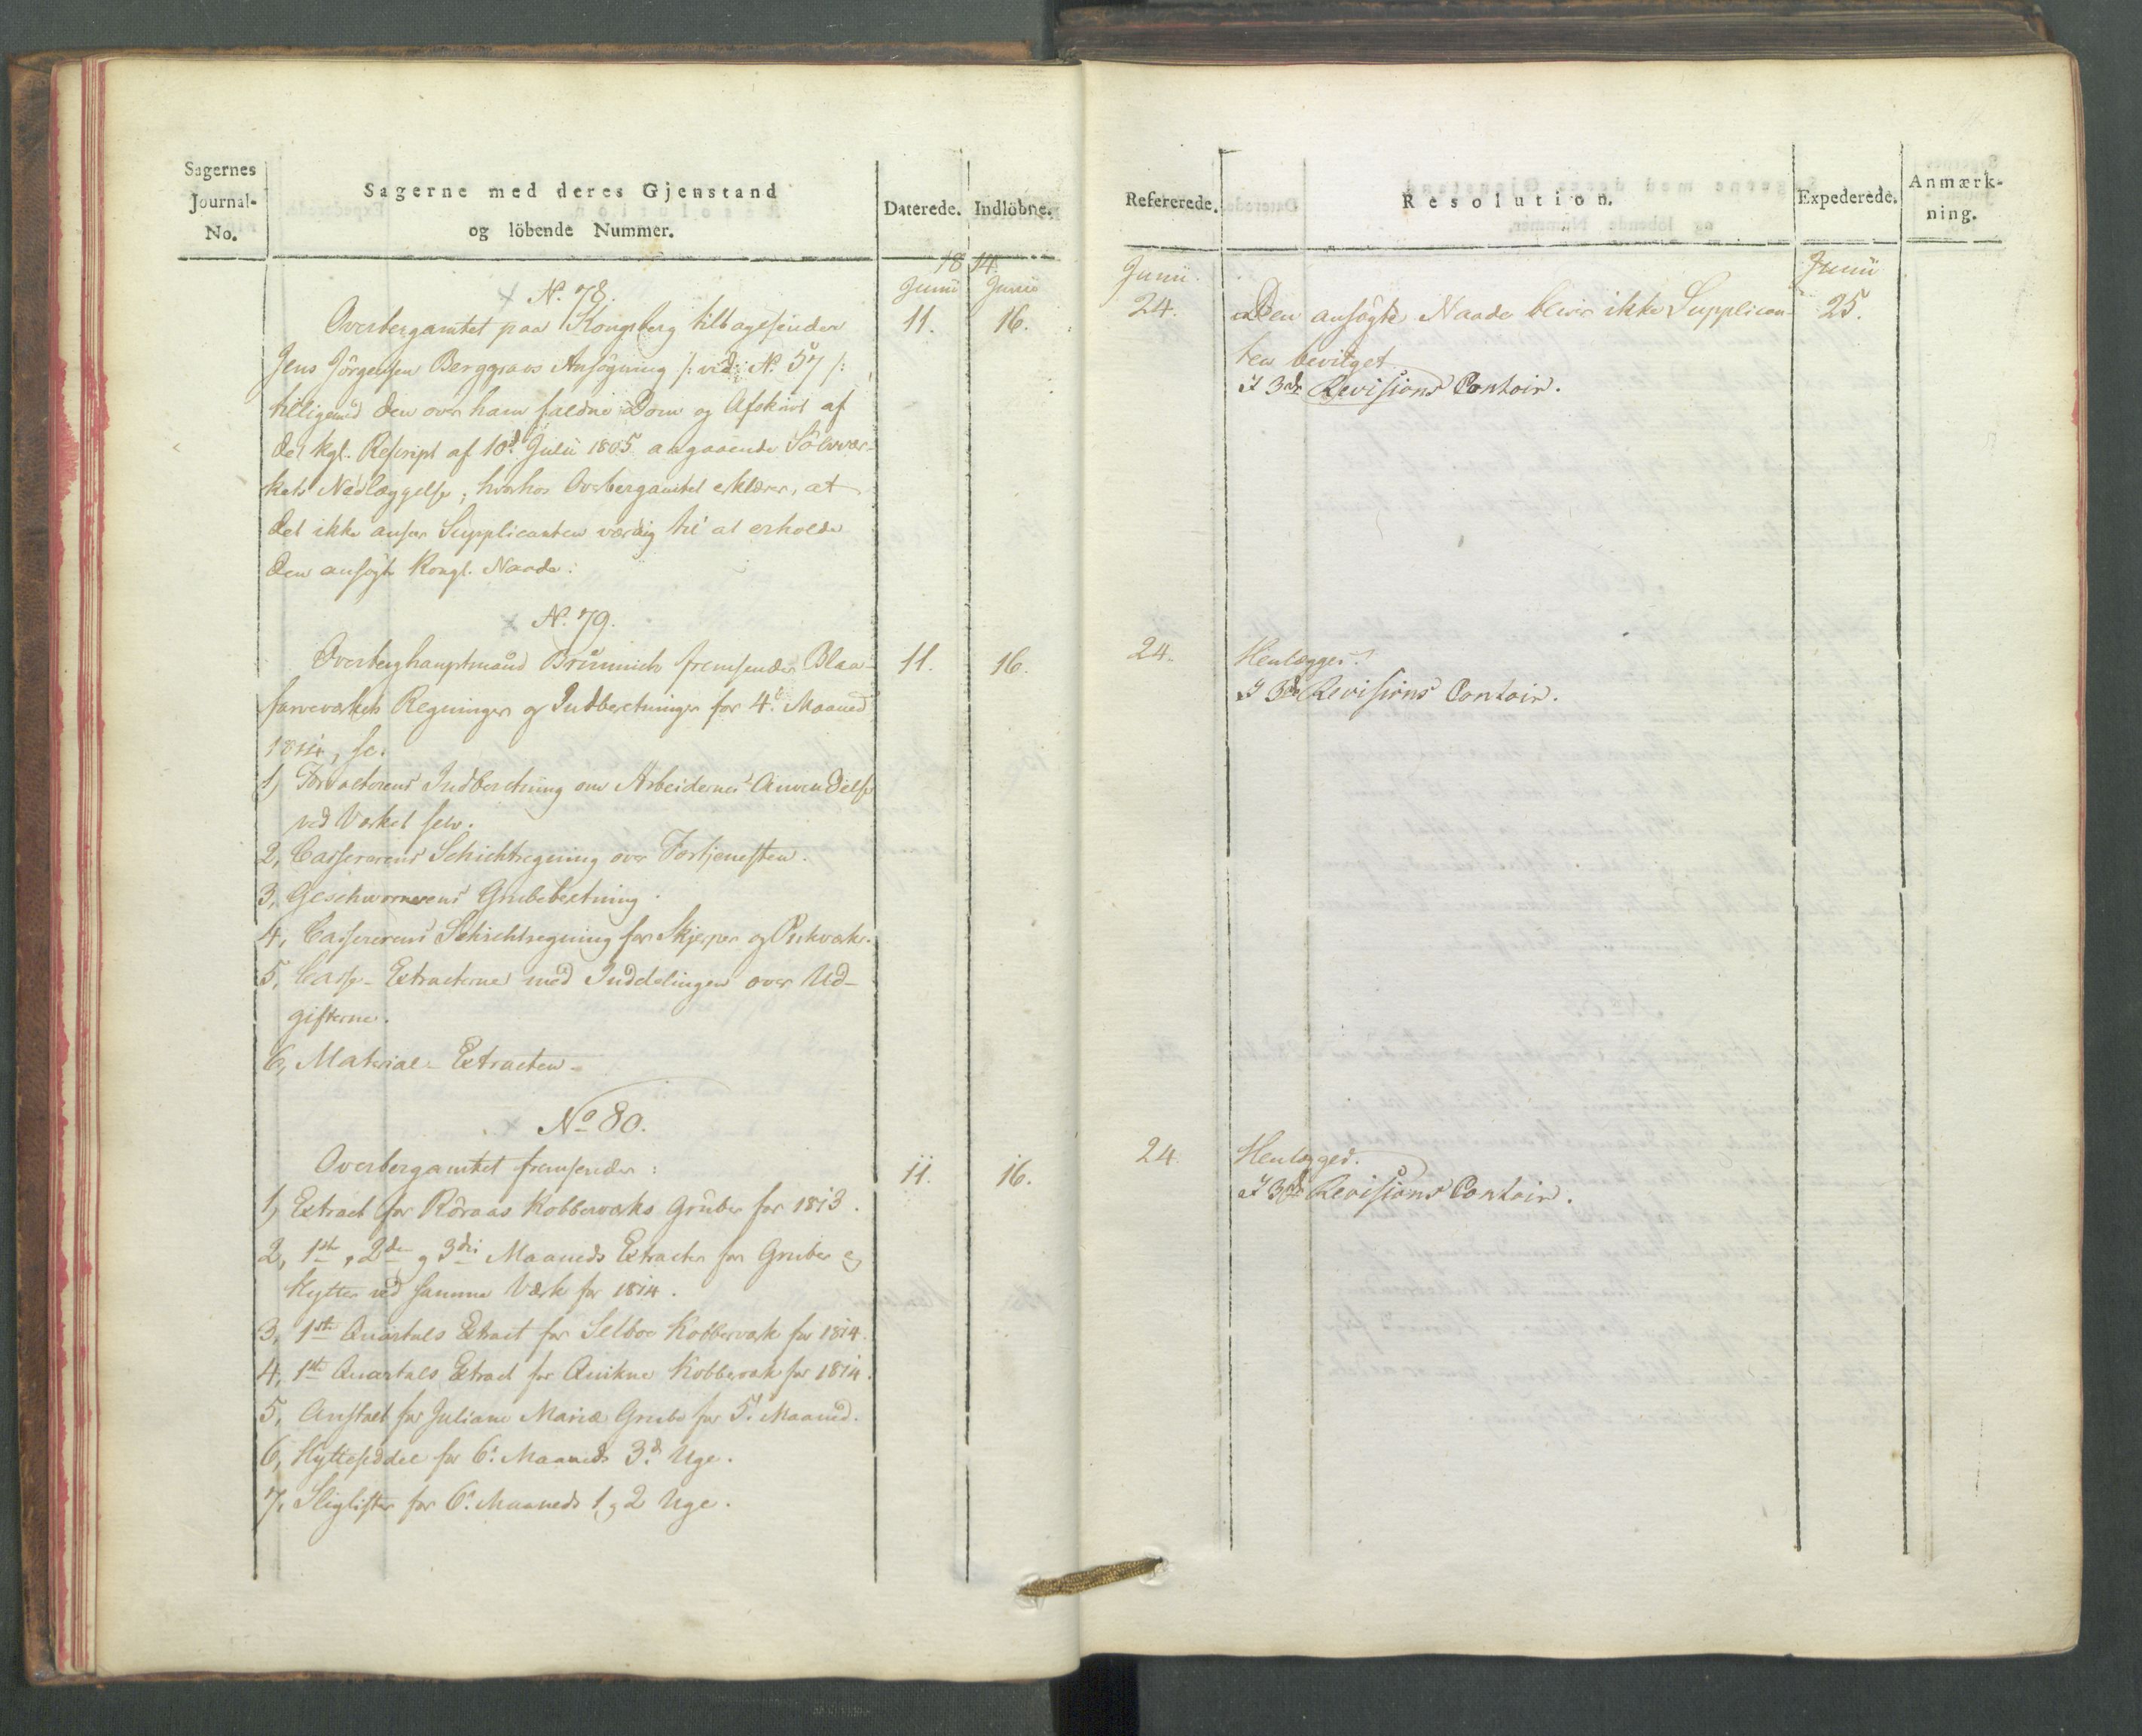 Sagernes
Journal-
No.
Sagerne med deres Gjenstand
og löbende Nummer.
Daterede.
Indlöbne.
1814.
Junii Junii
N. 78.
Overbergamtet paa Kongsberg tilbagesender
11.
16.
Jens Jörgensen Berggravs Ansögning /: vid: N. 57 /:
tilligemed den over ham faldne Dom og Afskrivt af
det kgl. Rescript af 10d Julii 1805 angaaende Sölvvær-
kets Nedlæggelse, hvorhos Overbergamtet erklærer, at
det ikke anseer Supplicanten værdig til at erholde
den ansögte Kongl. Naade.
N. 79.
Overberghauptmand Brünnich fremsender Blaa-
11.
16.
farveværkets Regninger og Indberetninger for 4. Maaned
1814, sc.
1) Forvalterens Indberetning om Arbeidernes Anvendelse
ved Værket selv.
2, Cassererens Schichtregning over Fortjenesten.
3, Geschwornerens Grubeberetning.
4, Cassererens Schichtregning for Skjerper og Puckværk.
5, Casse-Extracterne med Inddelingen over Ud-
gifterne.
6, Material-Extracten.
No 80.
Overbergamtet fremsender:
11.
16.
1, Extract for Röraas Kobberværks Gruber for 1813.
2, 1ste, 2den og 3die Maaneds Extracter for Gruber og
Hytter ved samme Værk for 1814.
3, 1ste Quartals Extract for Selboe Kobberværk for 1814.
4, 1ste Quartals Extract for Quikne Kobberværk for 1814.
5, Anstalt for Juliane Mariæ Grube for 5. Maaned.
6, Hytteseddel for 6. Maaneds 3d. Uge.
7, Sliglister for 6. Maaneds 1 og 2 Uge.
Refererede.
Resolution.
Expederede.
Anmærk-
ning.
Junii
Junii
24.
Den ansögte Naade bliver ikke Supplican-
25.
ten bevilget
I 3die Revisions Contoir.
24.
Henlægges.
I 3die Revisions Contoir.
24
Henlægges.
I 3die Revisions Contoir.